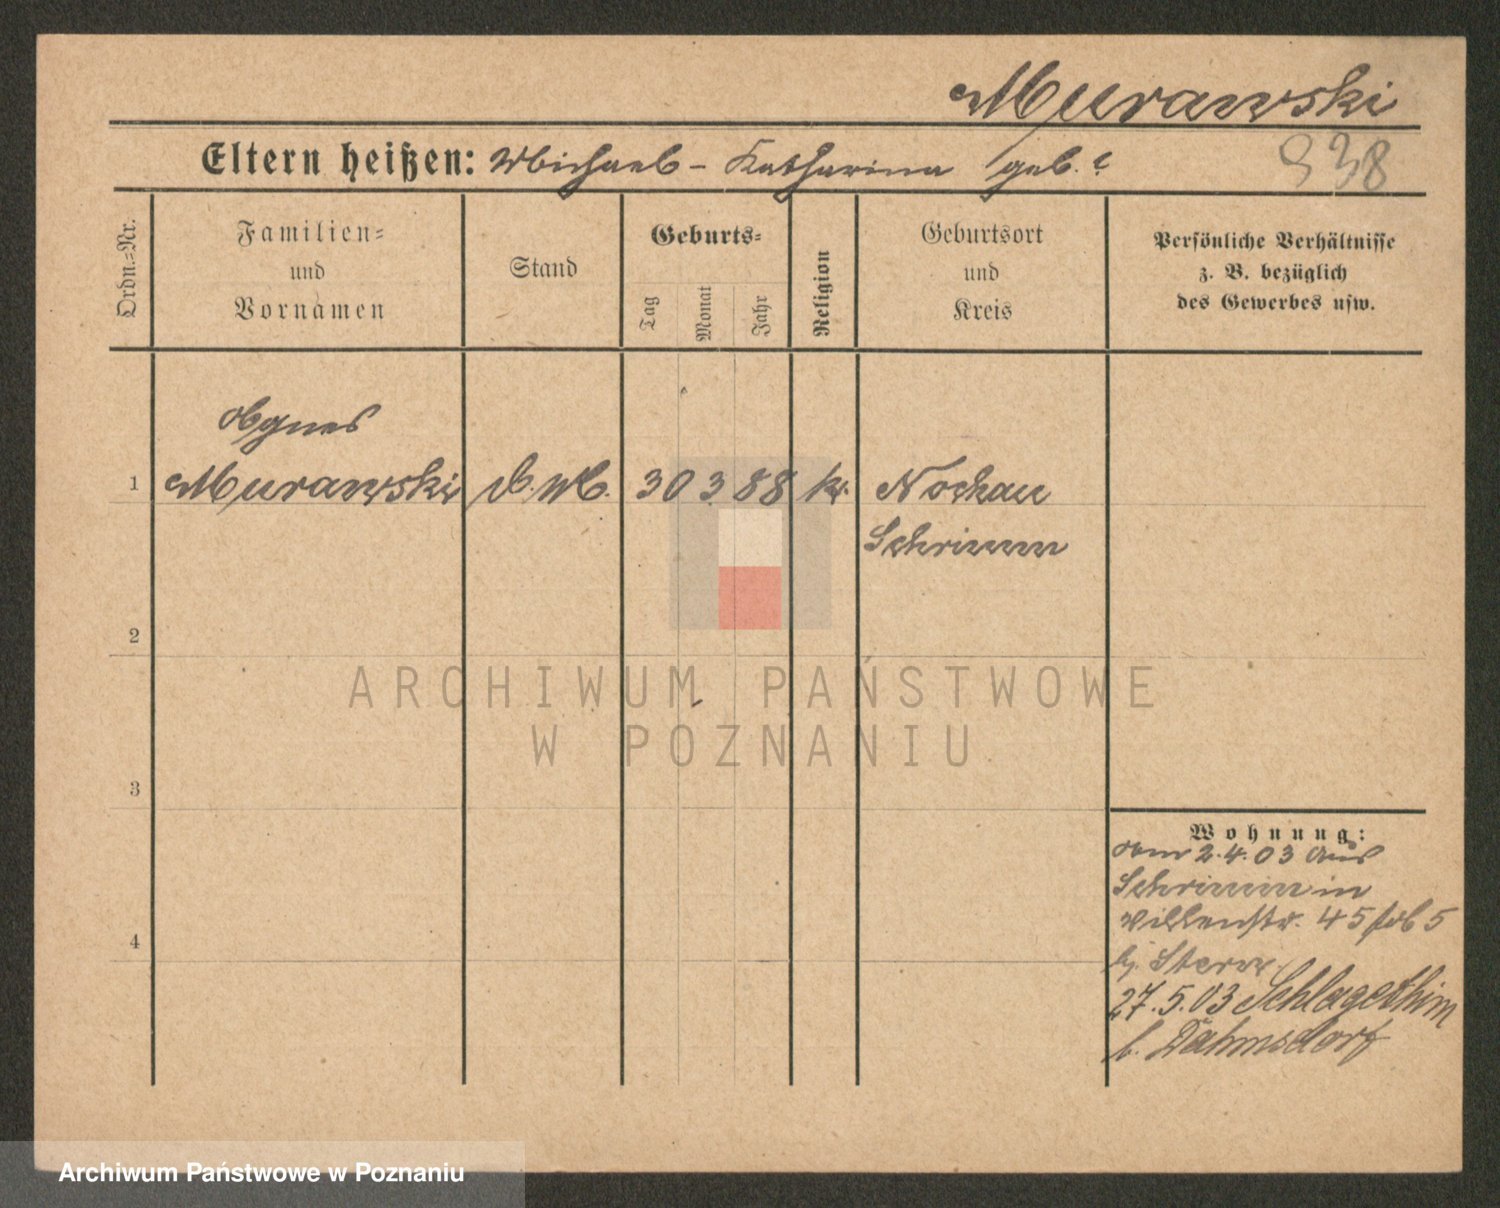 Murawski
Eltern heißen: Michael - Katharina geb. ?
938
Ordn.-Nr.
Familien-
und
Vornamen
Stand
Geburts-
Tag
Monat
Jahr
Religion
Geburtsort
und
Kreis
Persönliche Verhältnisse
z. B. bezüglich
des Gewerbes usw.
Agnes
1 Murawski D. M. 30 3 88 k. Nochau
Schrimm
2
3
4
Wohnung:
vom 2.4.03 aus
Schrimm in
45 5
b. Stern
27.5.03 Schlagenthin
b. Dahmsdorf
ARCHIWUM PAŃSTWOWE
W POZNANIU
Archiwum Państwowe w Poznaniu